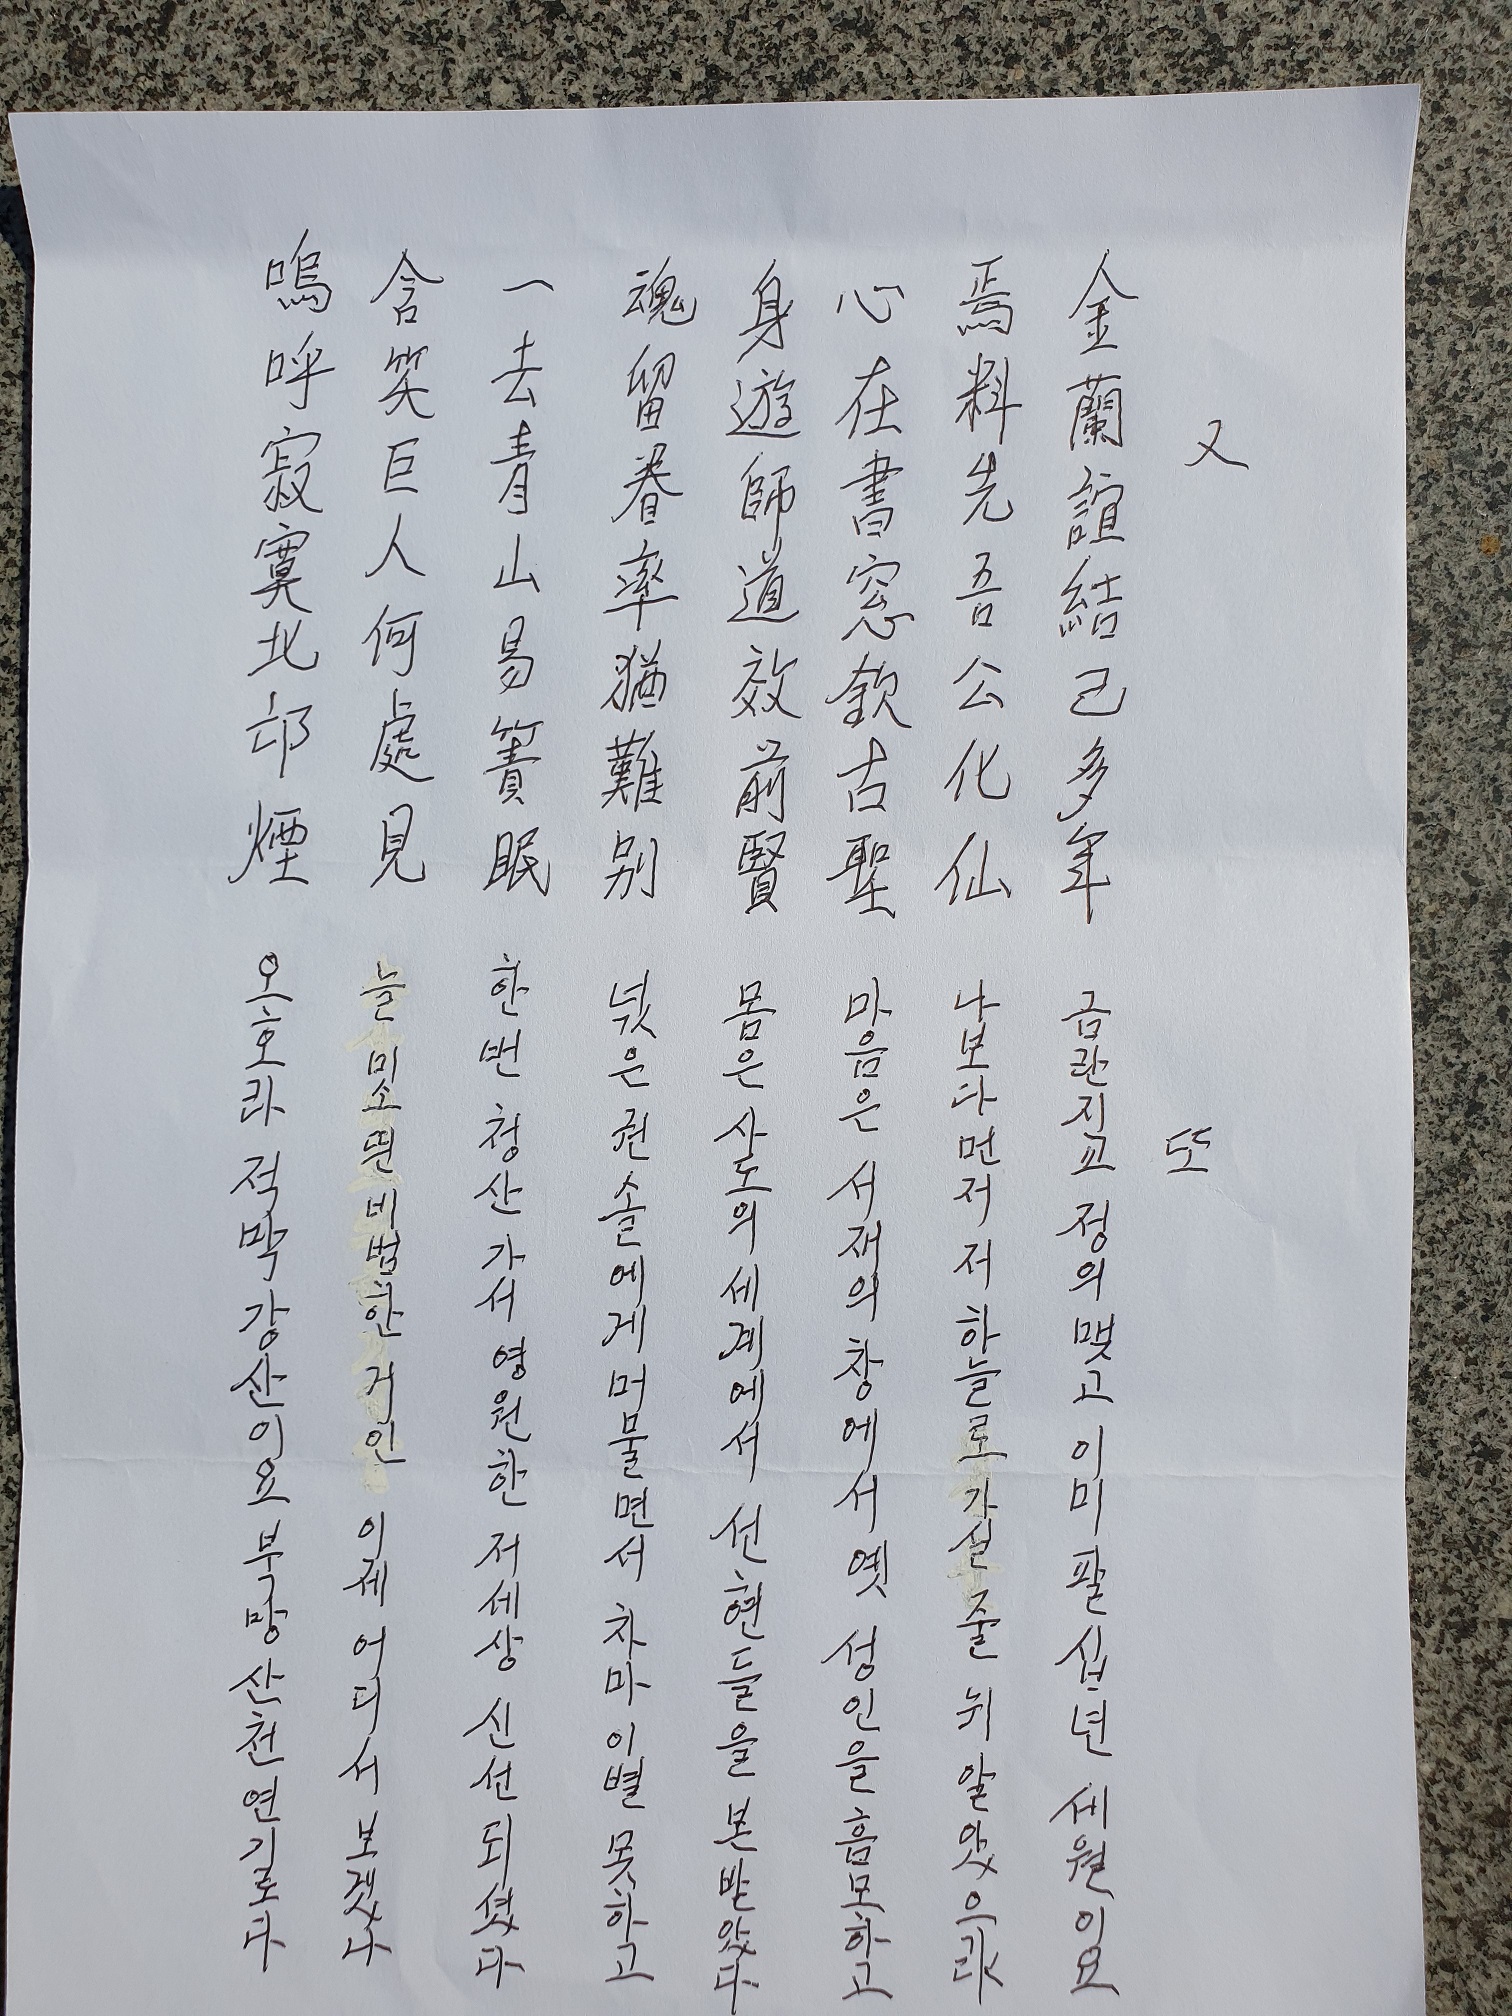 又
金蘭誼結已多年
焉料先吾公化仙
心在書窓欽古聖
身遊師道效前賢
魂留眷率猶難別
一去青山易簀眠
含笑巨人何處見
嗚呼寂寞北邙煙
또
금란지교 정의 맺고 이미 팔십년 세월이요
나보다 먼저 저 하늘로 가실 줄 뉘 알았으랴
마음은 서재의 창에서 옛 성인을 흠모하고
몸은 사도의 세계에서 선현들을 본받았다
넋은 권솔에게 머물면서 차마 이별 못하고
한번 청산 가서 영원한 저세상 신선되셨다
늘 미소띈 비범한 거인 이제 어디서 보겠나
오호라 적막강산이요 북망산천 연기로다